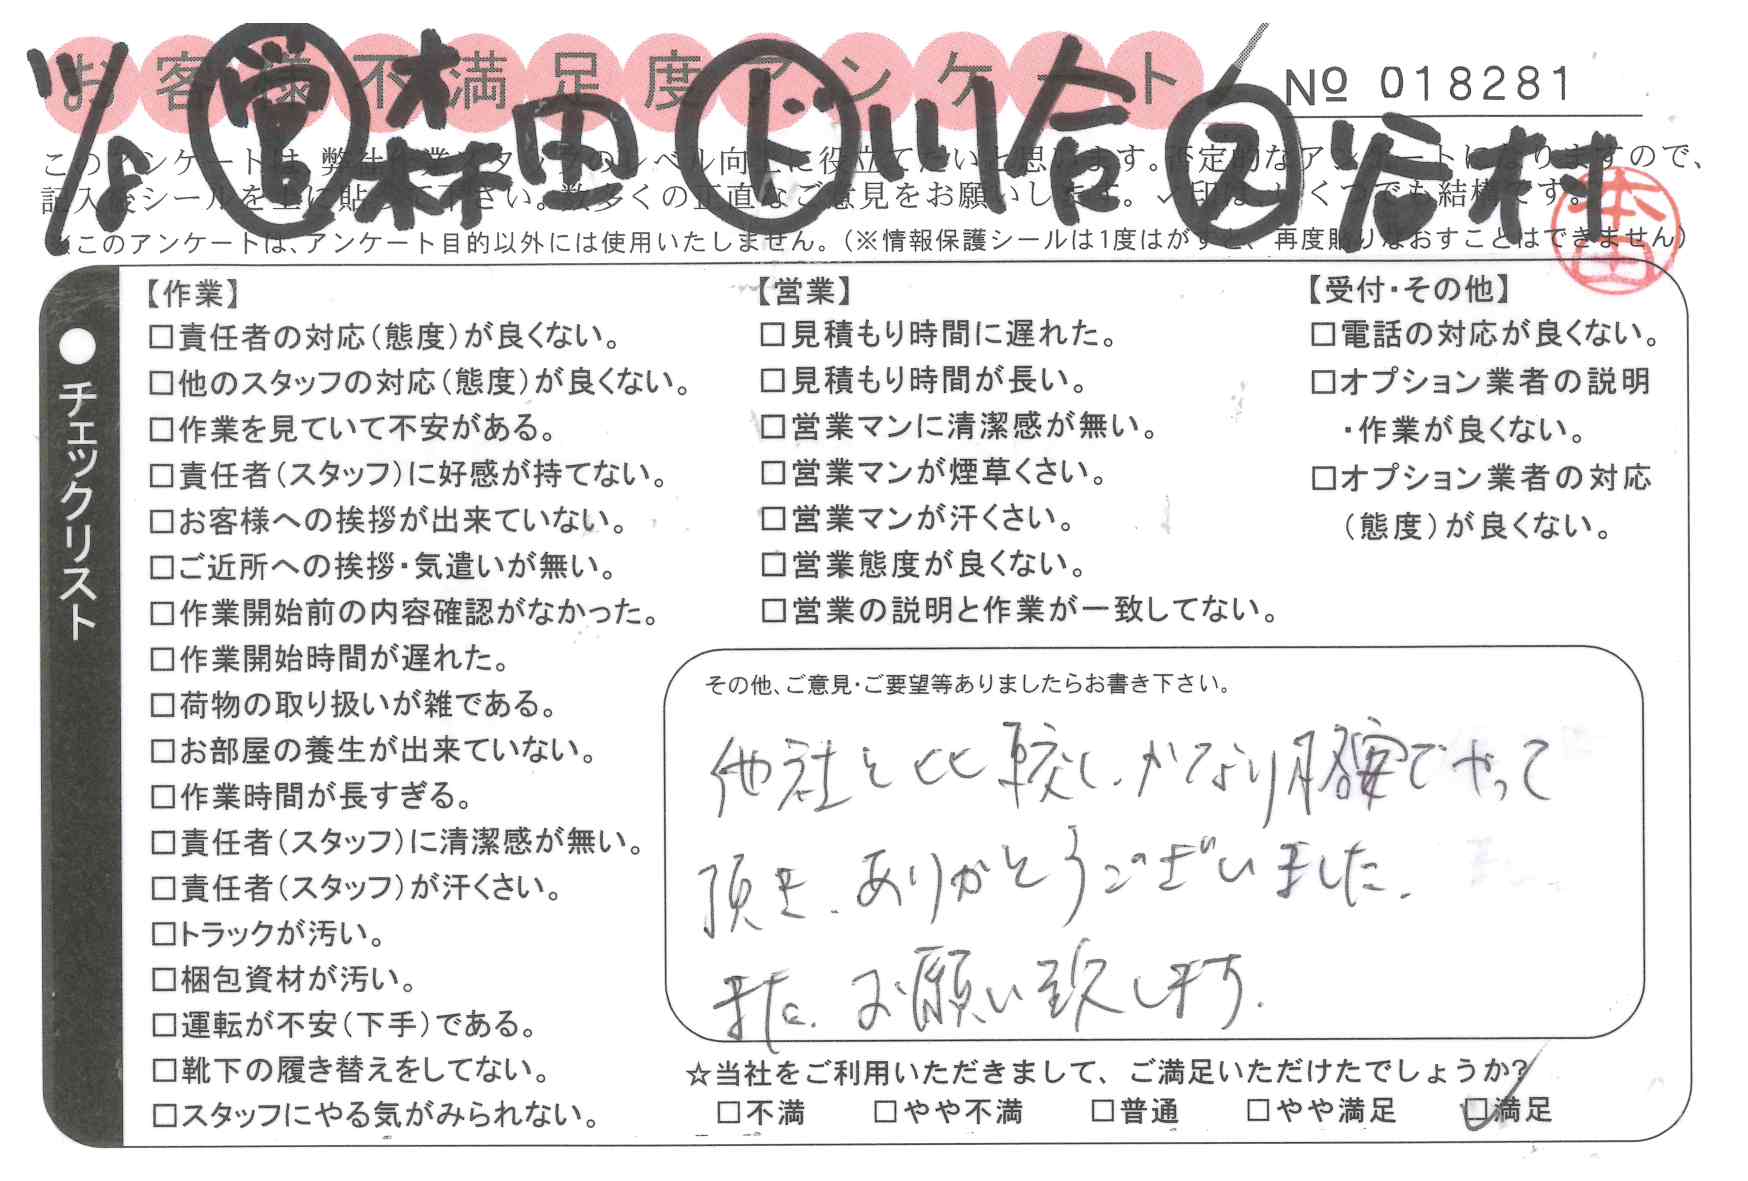 お客様不満足度アンケート
№ 018281
営 森田 ド 川合 ス 谷村
このアンケートは、弊社作業スタッフのレベル向上に役立てたいと思います。否定的なアンケートになりますので、
記入後シールを上に貼って下さい。数多くの正直なご意見をお願いします。✓印はいくつでも結構です。
※このアンケートは、アンケート目的以外には使用いたしません。(※情報保護シールは1度はがすと、再度貼りなおすことはできません)
本田
●チェックリスト
【作業】
□責任者の対応(態度)が良くない。
□他のスタッフの対応(態度)が良くない。
□作業を見ていて不安がある。
□責任者(スタッフ)に好感が持てない。
□お客様への挨拶が出来ていない。
□ご近所への挨拶・気遣いが無い。
□作業開始前の内容確認がなかった。
□作業開始時間が遅れた。
□荷物の取り扱いが雑である。
□お部屋の養生が出来ていない。
□作業時間が長すぎる。
□責任者(スタッフ)に清潔感が無い。
□責任者(スタッフ)が汗くさい。
□トラックが汚い。
□梱包資材が汚い。
□運転が不安(下手)である。
□靴下の履き替えをしてない。
□スタッフにやる気がみられない。
【営業】
□見積もり時間に遅れた。
□見積もり時間が長い。
□営業マンに清潔感が無い。
□営業マンが煙草くさい。
□営業マンが汗くさい。
□営業態度が良くない。
□営業の説明と作業が一致してない。
【受付・その他】
□電話の対応が良くない。
□オプション業者の説明
・作業が良くない。
□オプション業者の対応
(態度)が良くない。
その他、ご意見・ご要望等ありましたらお書き下さい。
他社と比較し、かなり格安でやって
頂き、ありがとうございました。
また、お願い致します。
☆当社をご利用いただきまして、ご満足いただけたでしょうか?
□不満 □やや不満 □普通 □やや満足 ☑満足